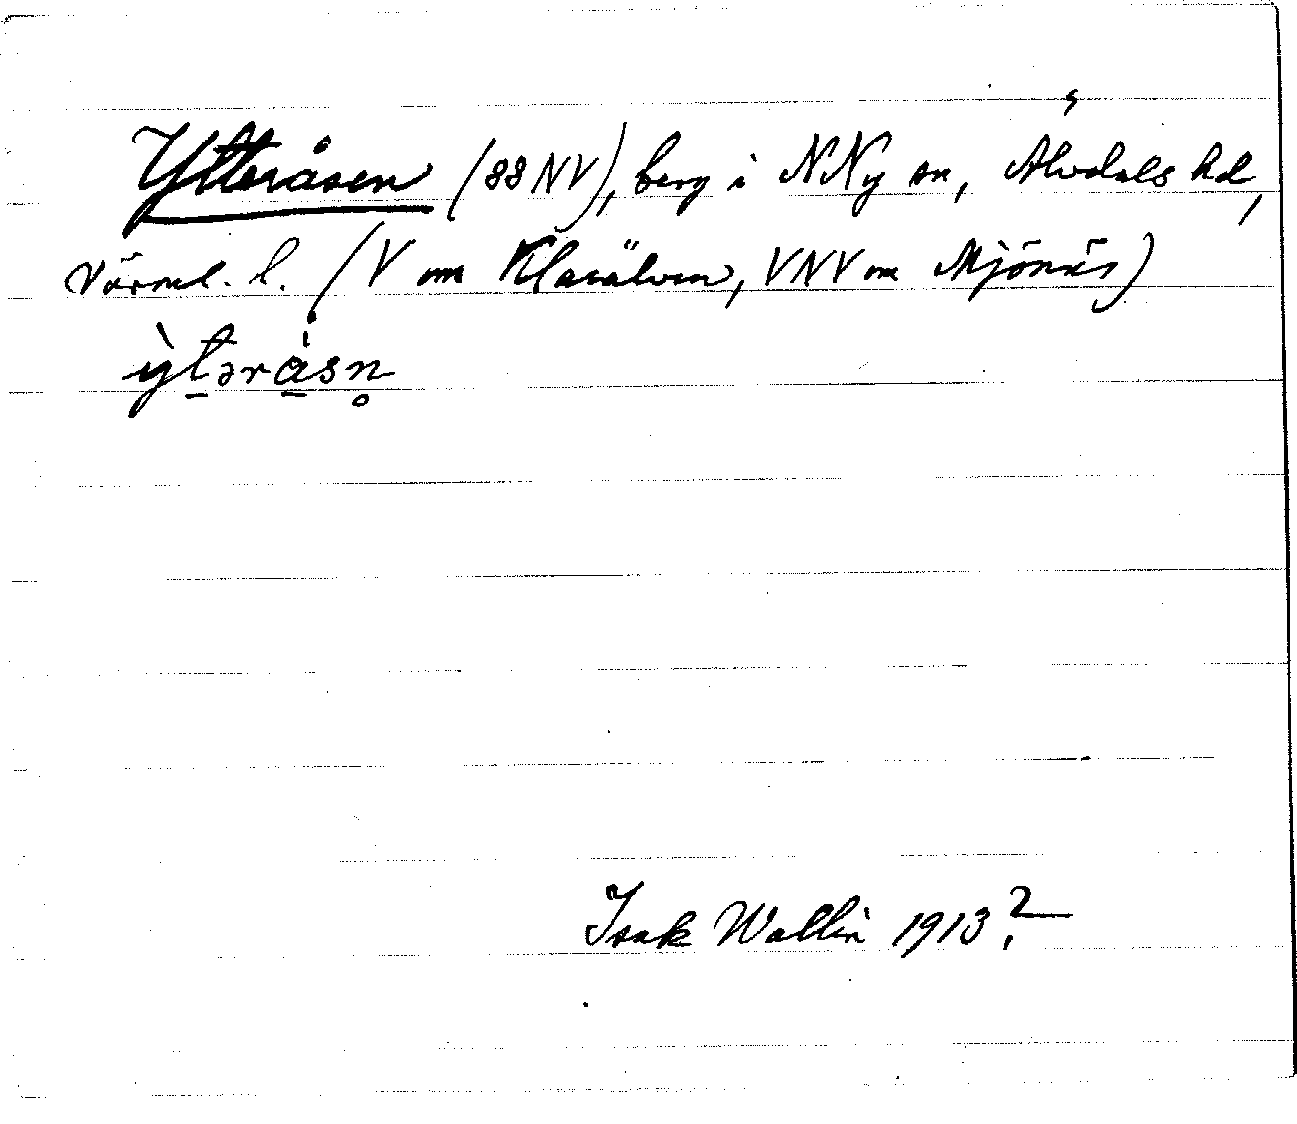 Ytteråsen (88 NV), berg i NNy sn, Älvdals hd,
Värml. l. (V om Klarälven, VNV om Mjönäs)
ỳt̠ərå̠̀sn̥
Isak Wallin 1913?